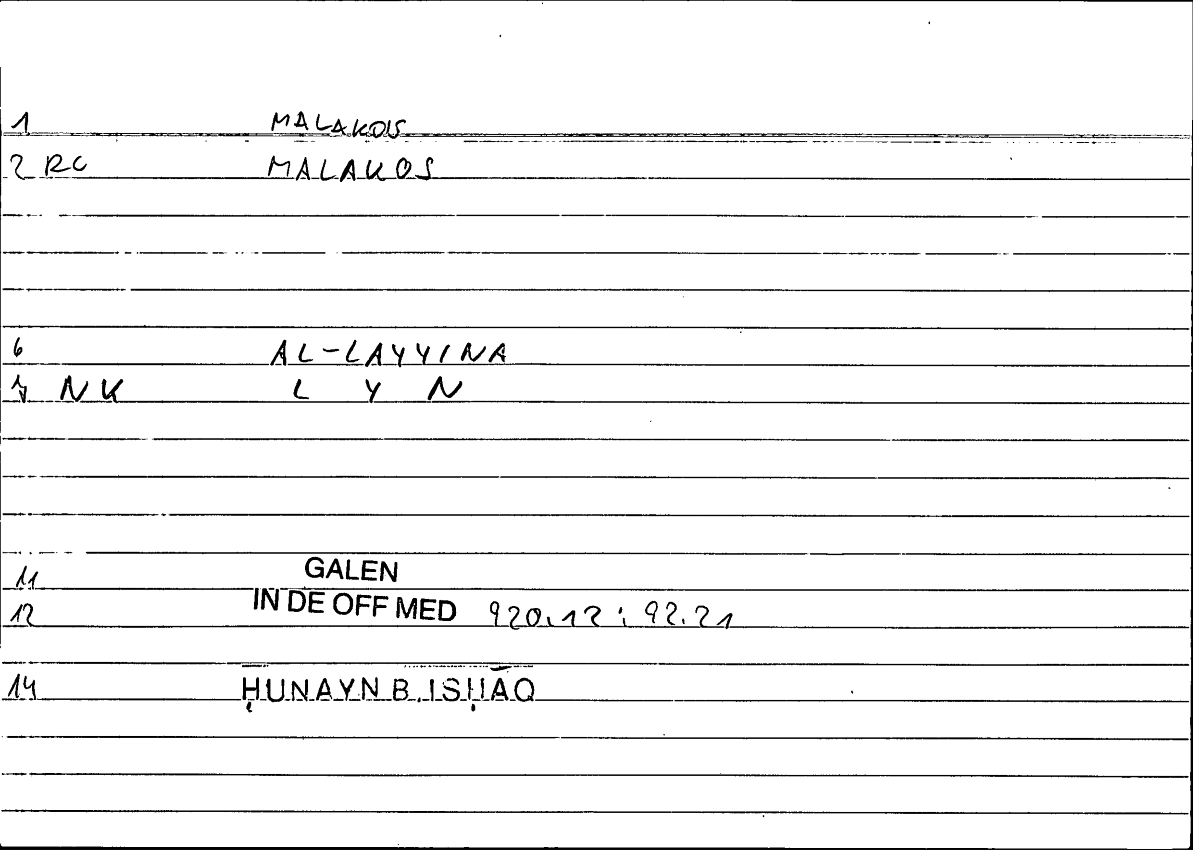 1 MALAKOIS
2 RC MALAKOS
6 AL-LAYYINA
7 NK L Y N
11 GALEN
12 IN DE OFF MED 920.12 ; 92.21
14 ḤUNAYN B. ISḤĀQ